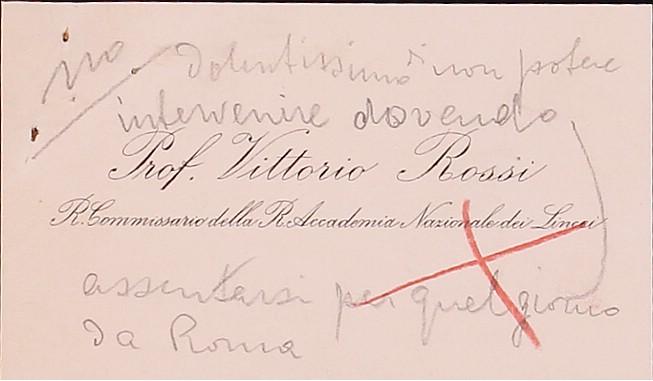 no
dolentissimo di non potere
intervenire dovendo
Prof. Vittorio Rossi
R. Commissario della R. Accademia Nazionale dei Lincei
assentarsi per quel giorno
da Roma